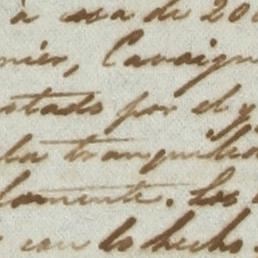 à casa de 200
nier, Cavaign
stado por el y
la tranquilid
lamente. Los
con lo hecho